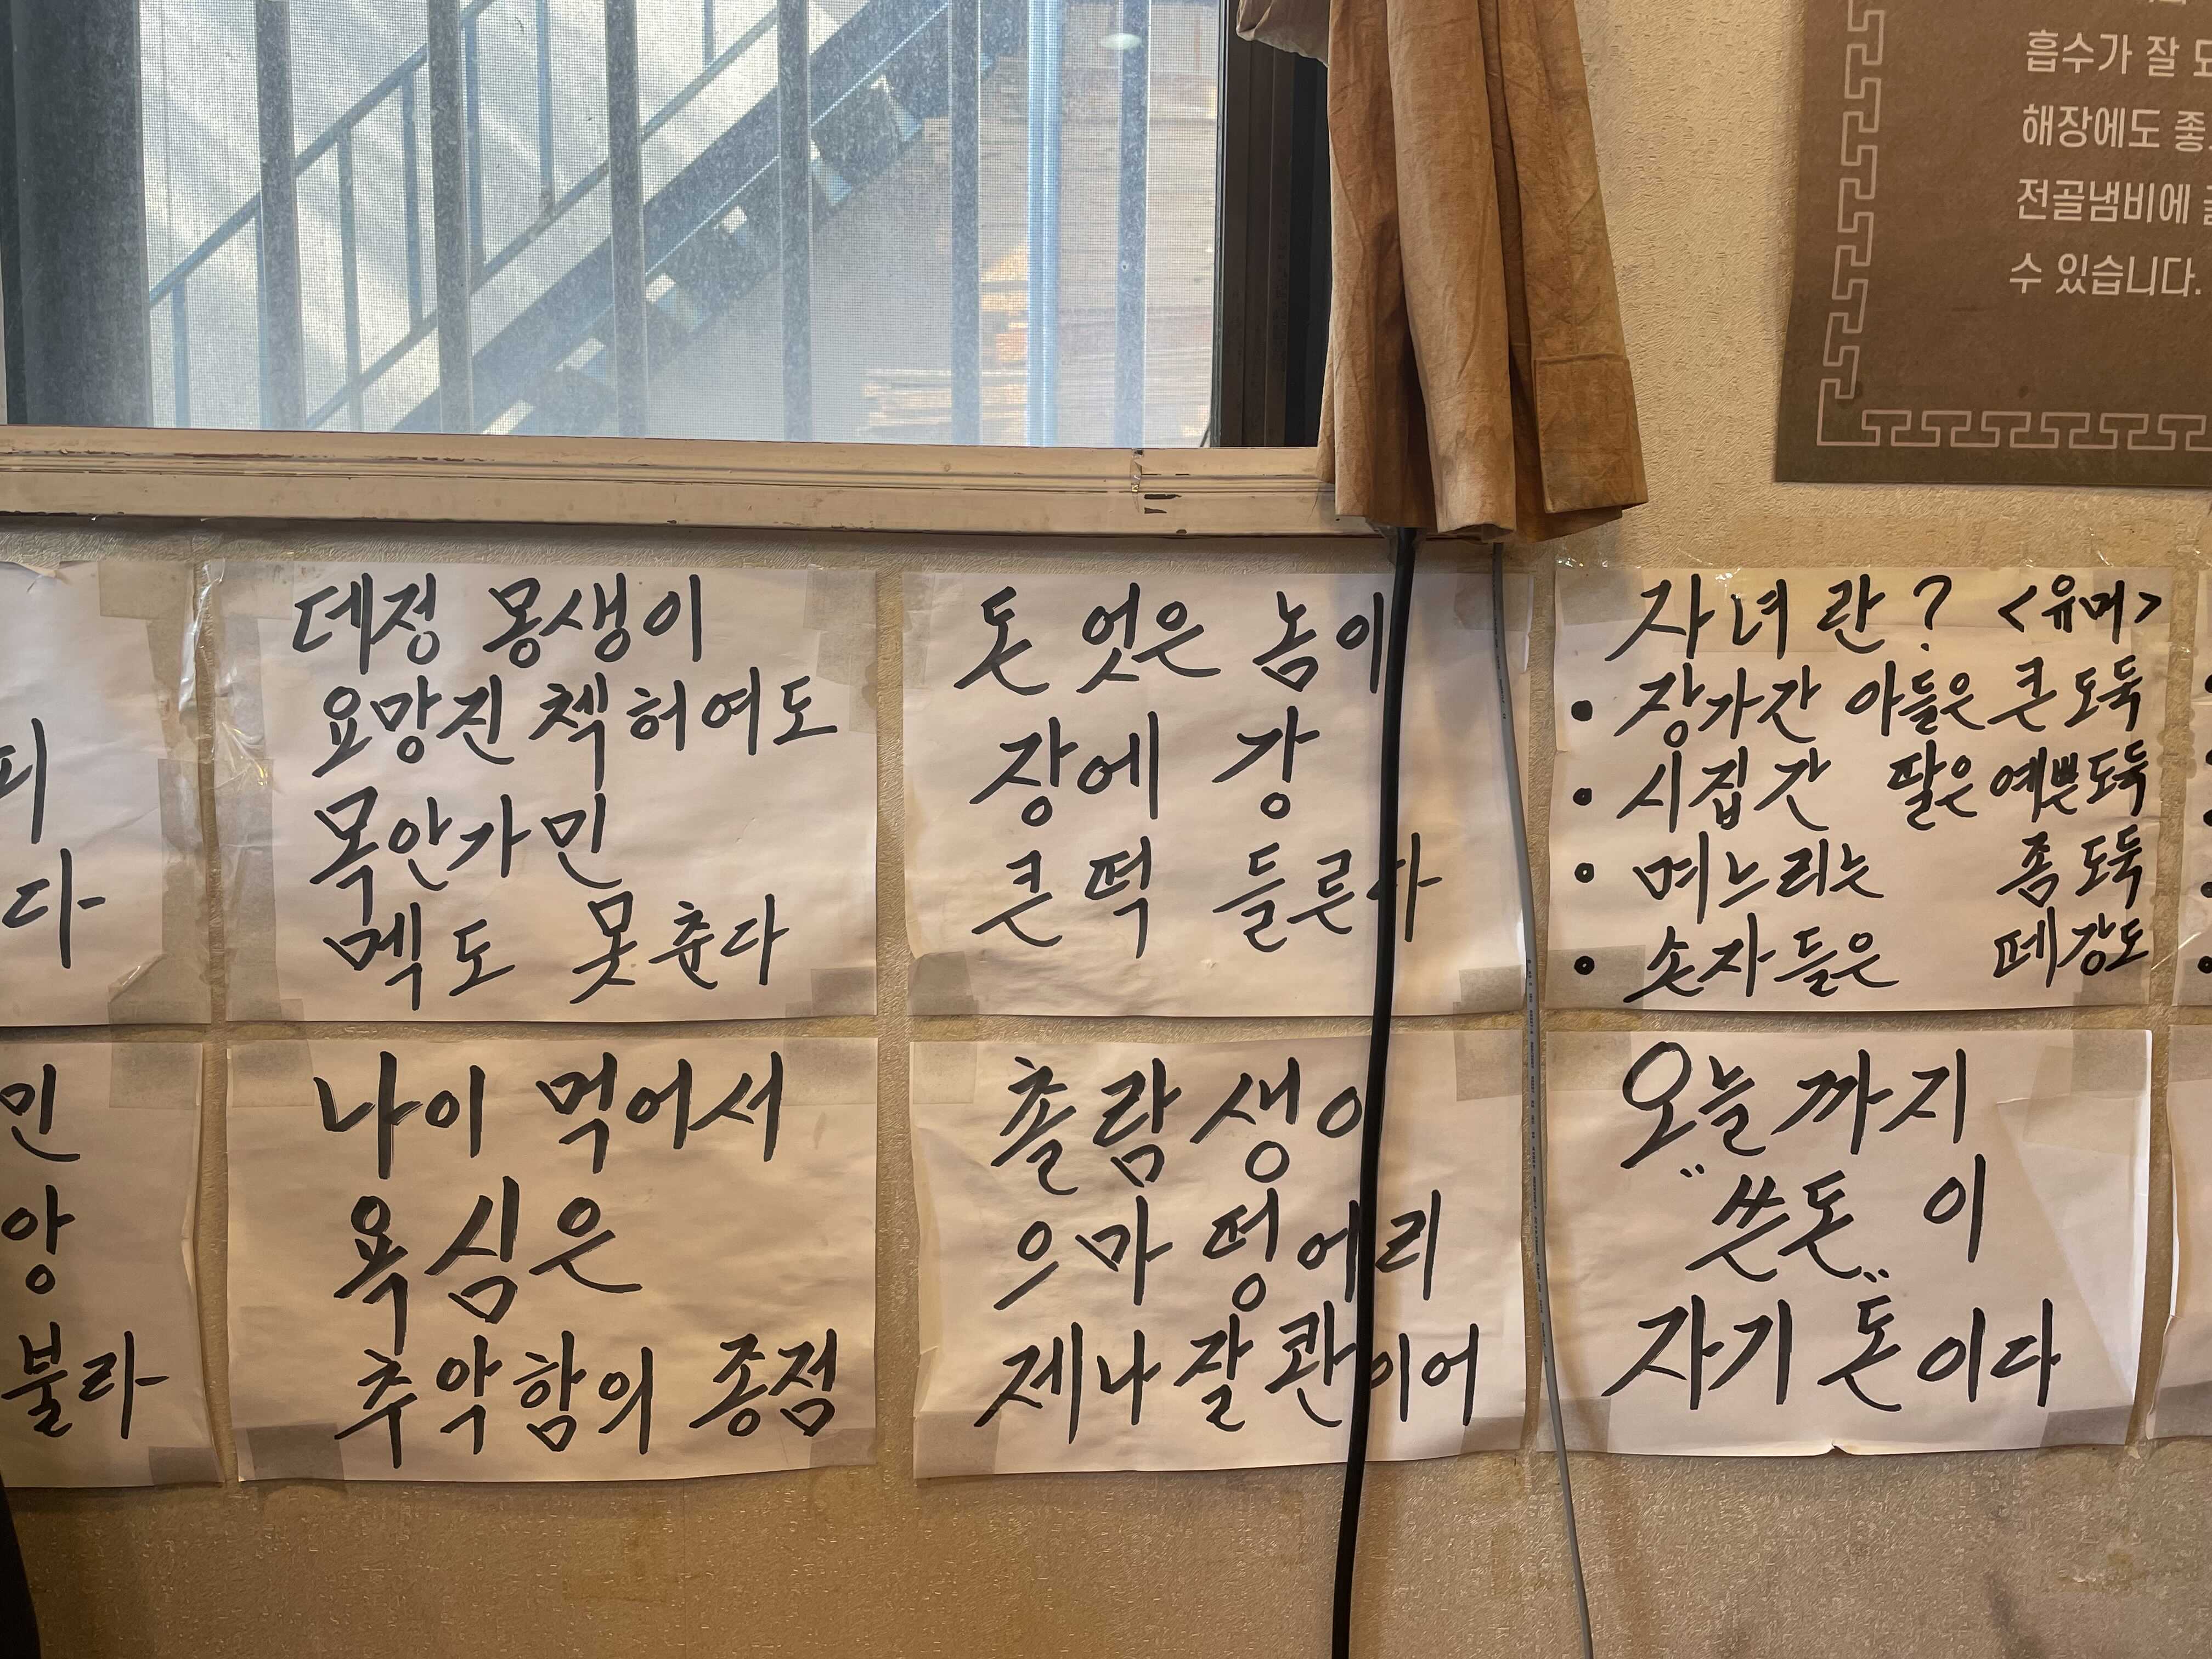 흡수가 잘
해장에도
전골냄비에
수 있습니다.
피
다
데정 몽생이
요망진 첵 허여도
목안가민
멕도 못 춘다
돈 엇은 놈이
장에 강
큰 떡 들른다
자녀란? <유머>
• 장가간 아들은 큰 도둑
• 시집간 딸은 예쁜도둑
• 며느리는 좀 도둑
• 손자들은 떼강도
민
앙
불라
나이 먹어서
욕심은
추악함의 종점
촐람생이
으마떵어리
제나잘콴이어
오늘까지
"쓴돈"이
자기 돈이다